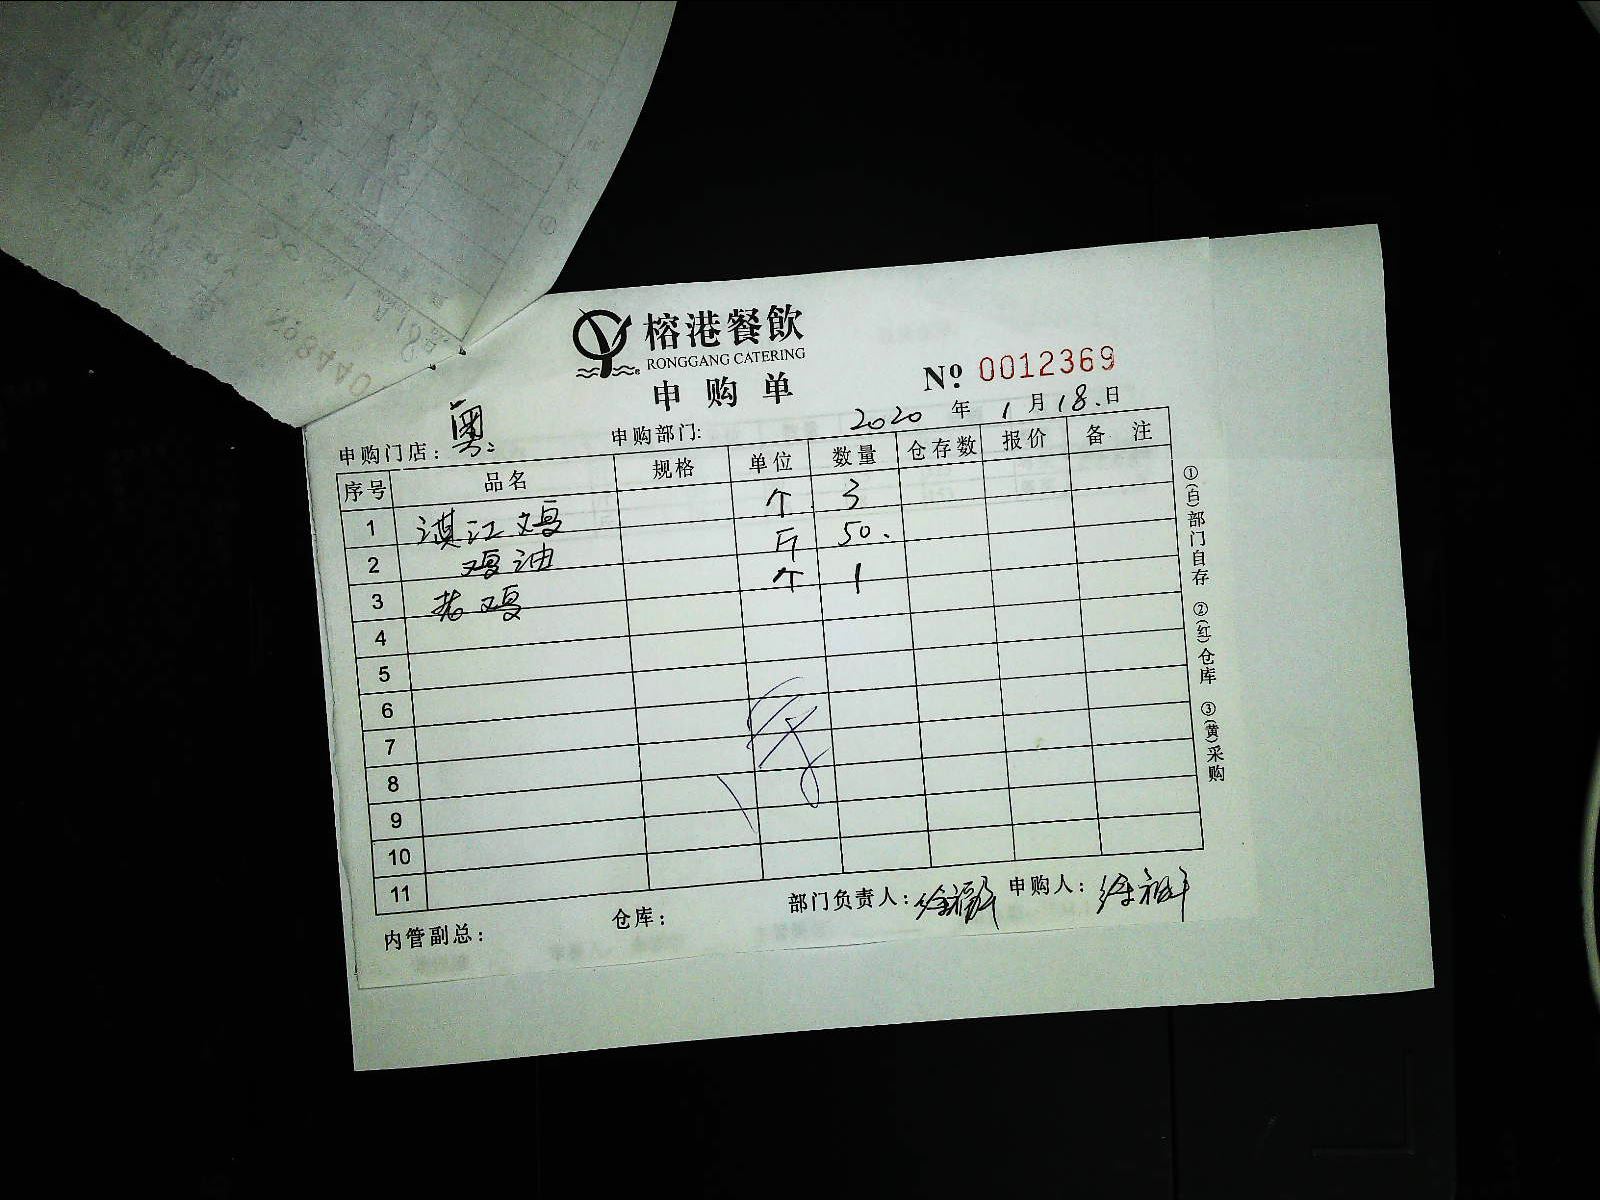 榕港餐飲
RONGGANG CATERING
申购单
Nº 0012369
2020 年 1 月 18. 日
申购门店: 粤 申购部门:
序号 品名 规格 单位 数量 仓存数 报价 备 注
1 湛江鸡 个 3
2 鸡油 斤 50.
3 老鸡 个 1
4
5
6
7
8
9
10
11
内管副总: 仓库: 部门负责人: 申购人:
①(白)部门自存 ②(红)仓库 ③(黄)采购